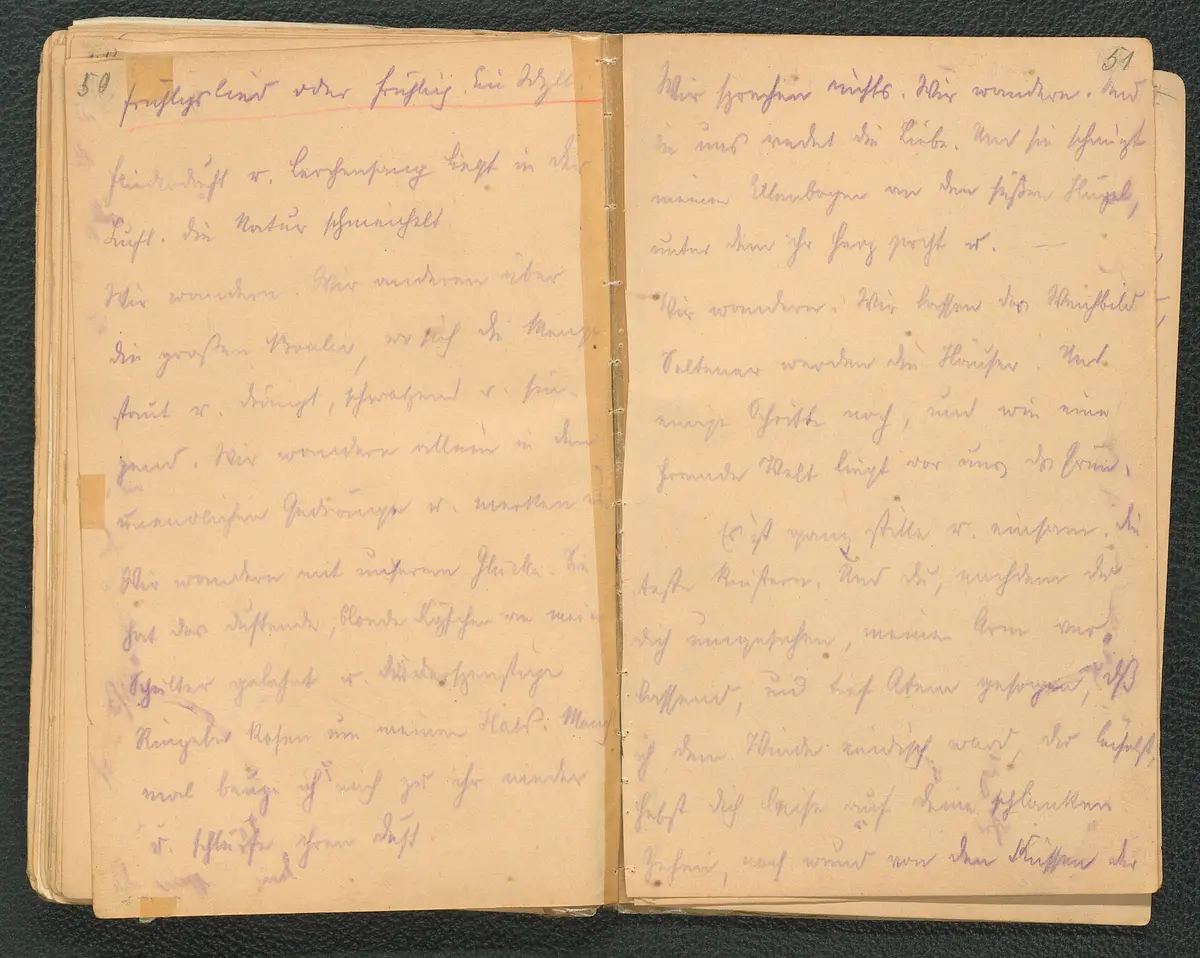 50
Frühlgslied oder Frühlig. Ein Idyll
Fliederduft u. Lerchensang liegt in der
Luft. Die Natur schmeichelt
Wir wandern. Wir wandern über
die großen Boulev, wo sich die Menge
staut u. drängt, schwatzend u. sin-
gend. Wir wandern allein in dem
unendlichen Gedränge u. merken
Wir wandern mit unserem Glücke. Sie
hat das duftende, blonde Köpfchen an mein
Schulter gelehnt u. Widerspenstige
Ringeln kosen um meinen Hals. Manch
mal beuge ich mich zu ihr nieder
u. schlürfe ihren Duft
51
Wir sprechen nichts. Wir wandern. Und
in uns redet die Liebe. Und sie schmiegt
meinen Ellenbogen an den süßen Hügel,
unter dem ihr Herz pocht u. —
Wir wandern. Wir lassen das Weichbild
Seltener werden die Häuser. Nur
einige Schritte noch, und wie eine
fremde Welt liegt vor uns das Grün.
Es ist ganz stille u. einsam. Die
Äste knistern. Und du, nachdem du
dich umgesehen, meinen Arm ver-
lassend, und tief Atem gesogen, dß
ich dem Winde neidisch ward, der lächelst,
hebst dich leise auf deine schlanken
Zehen, noch wund von den Küssen der